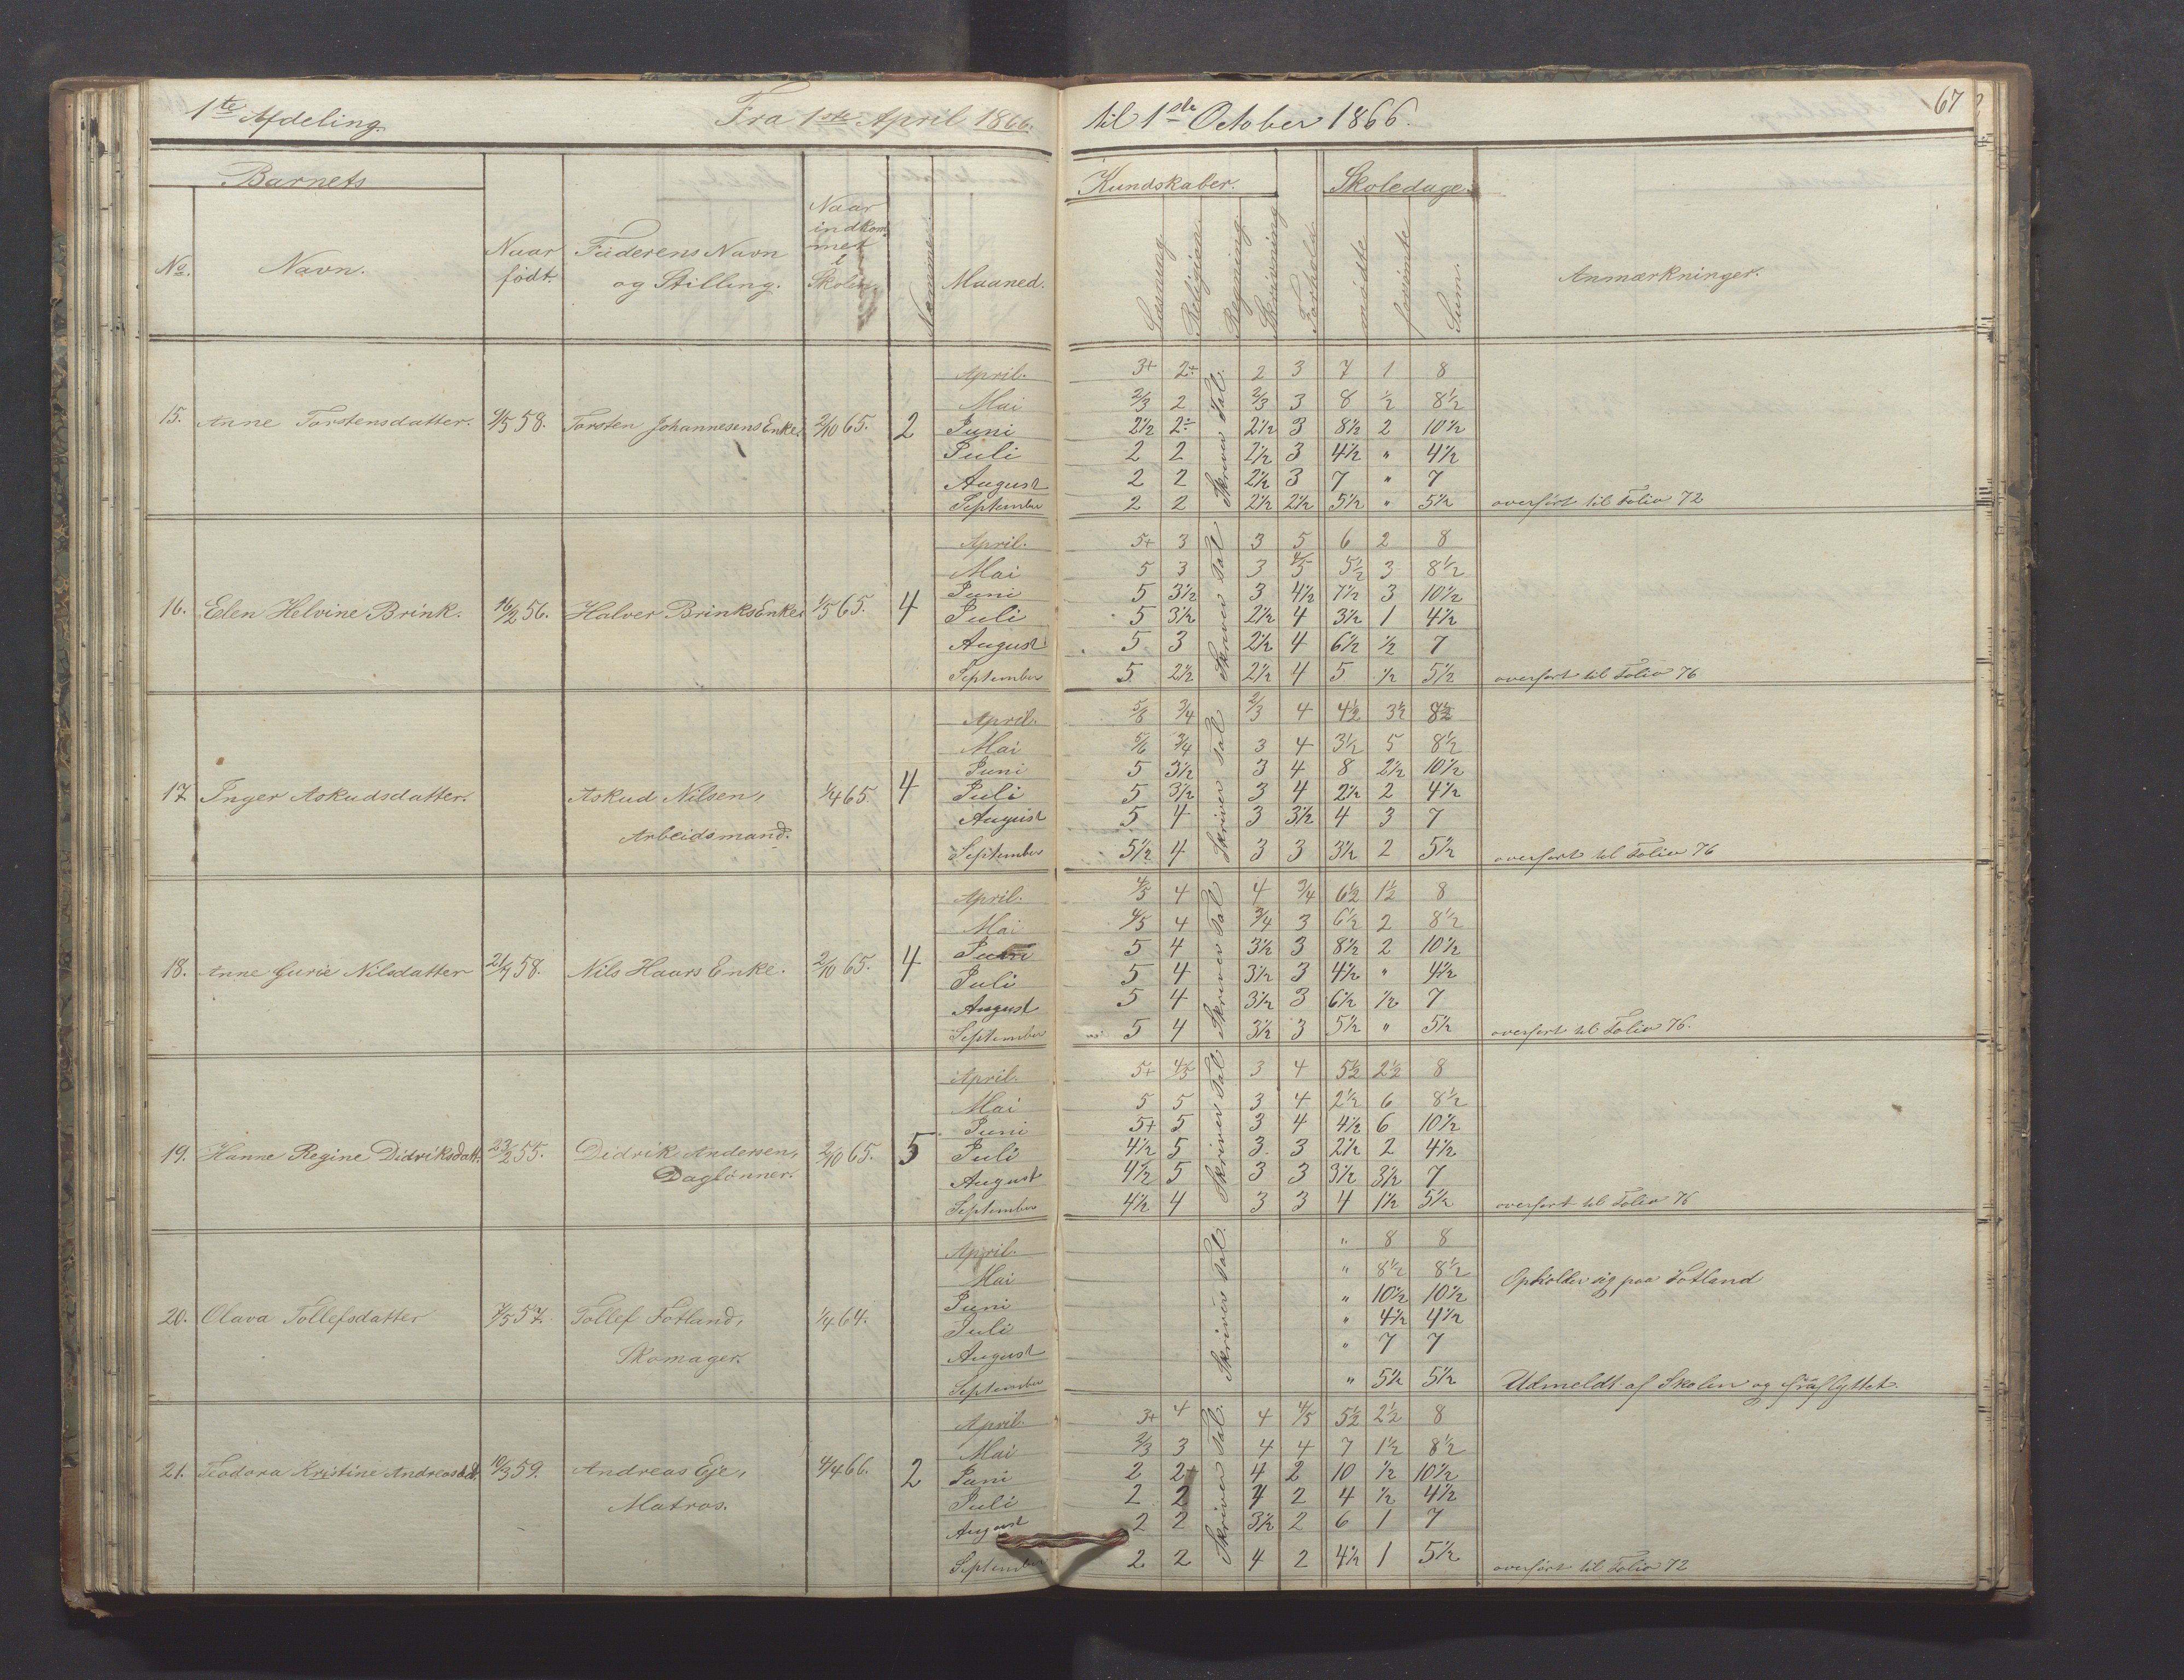 1ste Afdeling. Fra 1ste April 1866. til 1ste October 1866. 67
Barnets Kundskaber. Skoledage.
No. Navn. Naar født. Faderens Navn og Stilling. Naar indkommet i Skolen. Nummer. Maaned. Læsning Religion. Regning Skrivning Forhold. mødte forsømte Sum. Anmærkninger.
April. 3+ 2÷ 2 3 7 1 8
Mai 2/3 2 2/3 3 8 ½ 8½
15. Anne Torstensdatter. 9/5 58. Torsten Johannesens Enke. 2/10 65. 2 Juni 2½ 2÷ Skriver Tal. 2½ 3 8½ 2 10½
Juli 2 2 2½ 3 4½ " 4½
August 2 2 2½ 3 7 " 7
September 2 2 2½ 2½ 5½ " 5½ overført til Folio 72
April. 5+ 3 3 5 6 2 8
Mai 5 3 3 4/5 5½ 3 8½
Juni 5 3½ 3 4½ 7½ 3 10½
16. Elen Helvine Brink. 16/2 56. Halver Brinks Enke 1/5 65. 4 Juli 5 3½ Skriver Tal 2½ 4 3½ 1 4½
August 5 3 2½ 4 6½ ½ 7
September 5 2½ 2½ 4 5 ½ 5½ overført til Folio 76
April. 5/6 3/4 2/3 4 4½ 3½ 8½
Mai 5/6 3/4 3 4 3½ 5 8½
Juni 5 3½ 3 4 8 2½ 10½
17 Inger Askudsdatter. Askud Nilsen, 1/4 65. 4 Juli 5 3½ Skriver Tal 3 4 2½ 2 4½
Arbeidsmand. August 5 4 3 3½ 4 3 7
September 5½ 4 3 3 3½ 2 5½ overført til Folio 76
April. 4/5 4 4 3/4 6½ 1½ 8
Mai 4/5 4 3/4 3 6½ 2 8½
Juni 5 4 3½ 3 8½ 2 10½
18. Anne Gurie Nilsdatter 21/7 58. Nils Haars Enke. 2/10 65. 4 Juli 5 4 Skriver Tal 3½ 3 4½ " 4½
August 5 4 3½ 3 6½ ½ 7
September 5 4 3½ 3 5½ " 5½ overført til Folio 76.
April. 5+ 4/5 3 4 5½ 2½ 8
Mai 5 5 3 4 2½ 6 8½
Juni 5+ 5 3 4 4½ 6 10½
19. Hanne Regine Didriksdatt. 23/2 55. Didrik Andersen, 2/10 65. 5 Juli 4½ 5 Skriver Tal 3 3 2½ 2 4½
Daglønner. August 4½ 5 3 3 3½ 3½ 7
September 4½ 4 3 3 4 1½ 5½ overført til Folio 76
April. " 8 8
Mai " 8½ 8½ Opholder sig paa Fotland
Juni " 10½ 10½
20. Olava Tollefsdatter 7/5 57. Tollef Fotland, 1/4 64. Juli Skriver Tal. " 4½ 4½
Skomager. August " 7 7
September " 5½ 5½ Udmeldt af Skolen og fraflyttet.
April. 3+ 4 4 4/5 5½ 2½ 8
Mai 2/3 3 4 4 7 1½ 8½
21. Teodora Kristine Andreasdt. 10/3 59. Andreas Eje, 4/4 66. 2 Juni 2 2+ Skriver Tal. 4 2 10 ½ 10½
Matros. Juli 2 2 4 2 4 ½ 4½
August 2 2 3½ 2 6 1 7
September 2 2 4 2 4½ 1 5½ overført til Folio 72